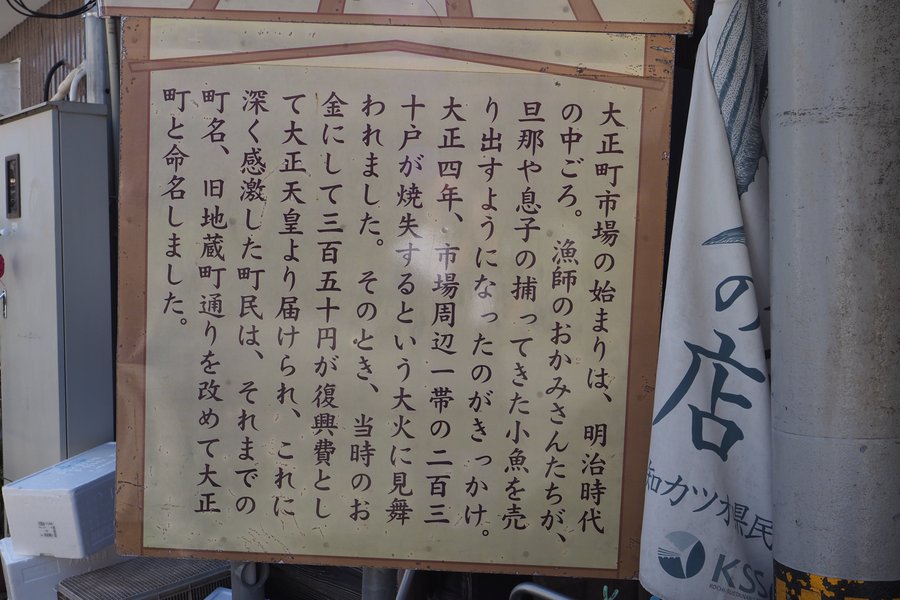 大正町市場の始まりは、明治時代
の中ごろ。漁師のおかみさんたちが、
旦那や息子の捕ってきた小魚を売
り出すようになったのがきっかけ。
大正四年、市場周辺一帯の二百三
十戸が焼失するという大火に見舞
われました。そのとき、当時のお
金にして三百五十円が復興費とし
て大正天皇より届けられ、これに
深く感激した町民は、それまでの
町名、旧地蔵町通りを改めて大正
町と命名しました。
の店
知カツオ県民
KSS